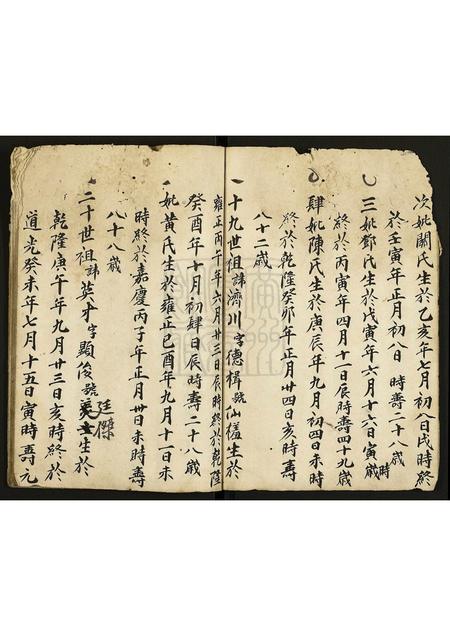 次妣關氏生於乙亥年七月初八日戌時終
於壬寅年正月初八日 時壽二十八歲
三妣鄧氏生於戊寅年六月十六日寅時
終於丙寅年四月十一日辰時壽四十九歲
肆妣陳氏生於庚辰年九月初四日未時
終於乾隆癸卯年正月廿四日亥時壽
八十二歲
一十九世祖諱濟川字德楫號仙槎生於
雍正丙午年六月廿三日辰時終於乾隆
癸酉年十月初肆日辰時壽二十八歲
妣黃氏生於雍正己酉年九月十一日未
時終於嘉慶丙子年正月廿日未時壽
八十八歲
二十世祖諱英才字顯俊號廷傑生於
乾隆庚午年九月廿三日亥時終於
道光癸未年七月十五日寅時壽元